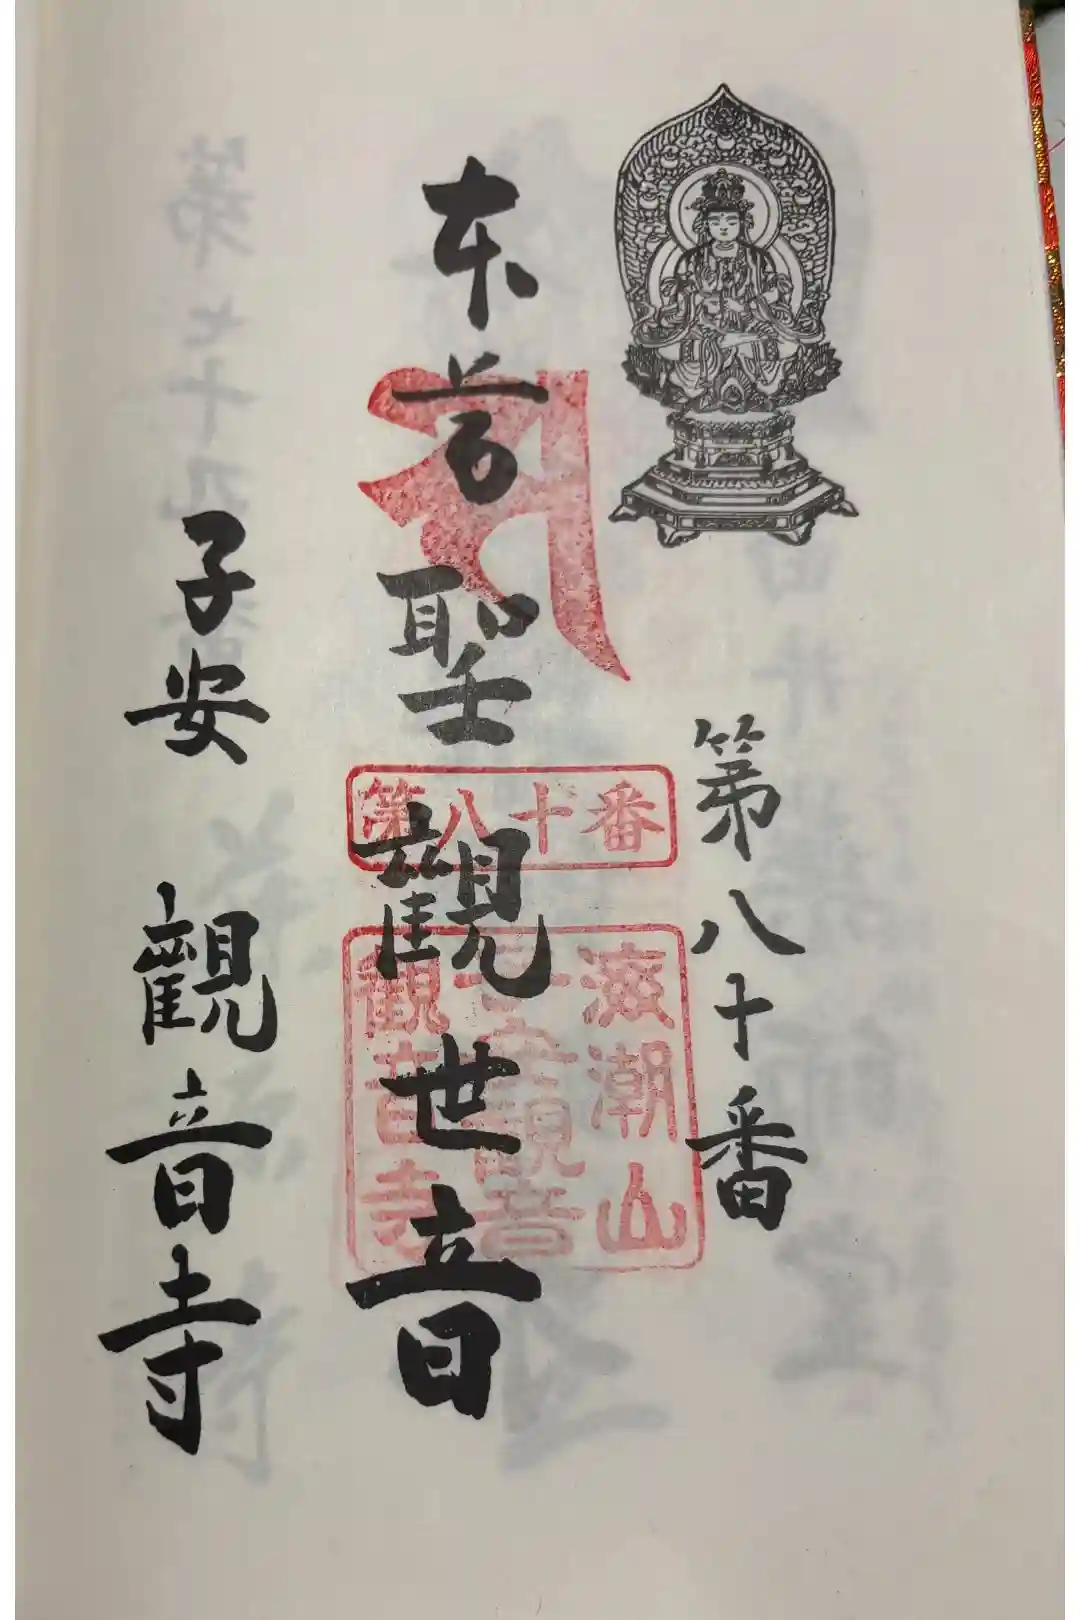 第八十番
本尊 聖觀世音
子安 觀音寺
第八十番
海潮山
子安観音
観音寺